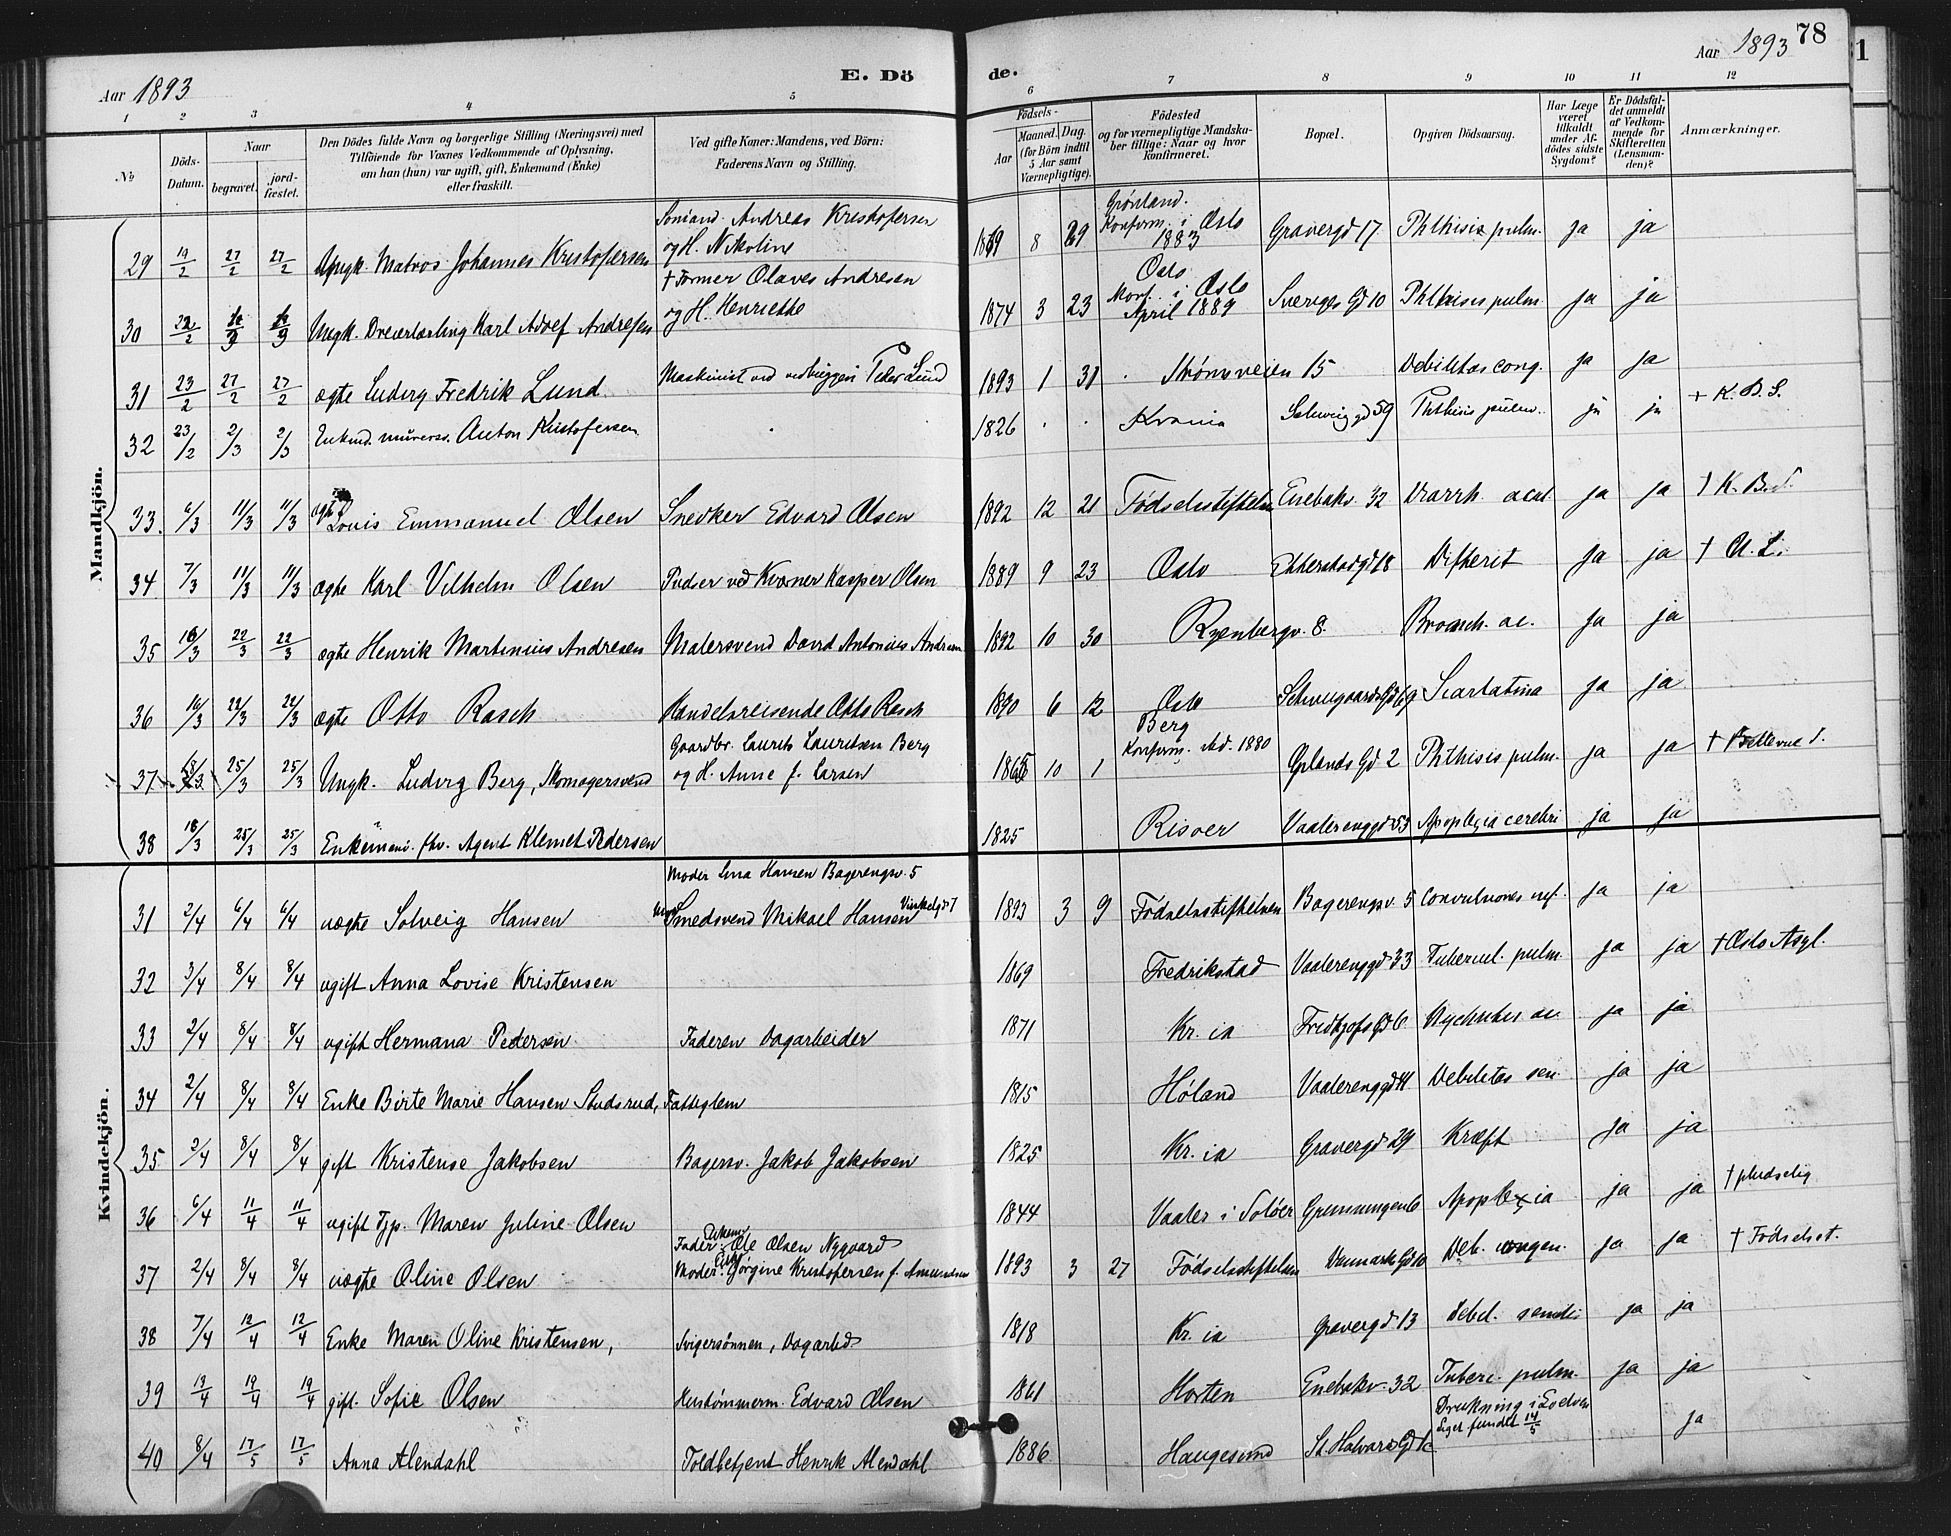 78
Aar 1893 E. Dö de. Aar 1893
1 2 3 4 5 6 7 8 9 10 11 12
No
Döds-Datum.
Naar
begravet.
jord-fæstet.
Den Dödes fulde Navn og borgerlige Stilling (Næringsvei) med
Tilföiende for Voxnes Vedkommende af Oplysning,
om han (hun) var ugift, gift, Enkemand (Enke)
eller fraskilt.
Ved gifte Koner: Mandens, ved Börn:
Faderens Navn og Stilling.
Födsels-
Aar
Maaned. Dag.
(for Börn indtil
5 Aar samt
Værnepligtige).
Födested
og for værnepligtige Mandska-
ber tillige: Naar og hvor
konfirmeret.
Bopæl.
Opgiven Dödsaarsag.
Har Læge
været
tilkaldt
under Af-
dödes sidste
Sygdom?
Er Dödsfal-
det anmeldt
af Vedkom-
mende for
Skifteretten
(Lensman-
den)?
Anmærkninger.
Mandkjön.
29 19/2 27/2 27/2 Ungk. Matros Johannes Kristofersen Sømand Andreas Kristofersen og H. Nikoline 1869 8 29 Grønland. Konfirm. i Oslo 1883 Gravergd 17 Phthisis pulm. ja ja
30 22/2 Ungk. Karl Adolf Andresen † Former Olaves Andresen og H. Henriette 1874 3 23 Oslo Konf. i Oslo April 1889 Sverges Gd 10 Phthisis pulm. ja ja
31 23/2 27/2 27/2 ægte Ludvig Fredrik Lund Maskinist ved Peder Lund 1893 1 31 Strømsveien 15 Debilitas cong. ja ja
32 23/2 2/3 2/3 Enkmd. murersv. Anton Kristofersen 1826 Krania Schweig gd 59 Phthisis pulm. ja ja + K. B. S.
33. 6/3 11/3 11/3 ægte Louis Emmanuel Olsen Snedker Edvard Olsen 1892 12 21 Fødselsstiftelsen Enebakv. 32 Diarrh. acut ja ja † K. B. S.
34 7/3 11/3 11/3 ægte Karl Vilhelm Olsen Pudser ved Kværner Kasper Olsen 1889 9 23 Oslo Ekebergd 18 Difterit ja ja † U. L.
35 18/3 22/3 22/3 ægte Henrik Martinius Andresen Malersvend David Antonius Andresen 1892 10 30 Ryenbergv. 8. Bronch. ac. ja ja
36 19/3 22/3 22/3 ægte Otto Rasch Handelsreisende Otto Rasch 1890 6 12 Oslo Schweigaards Gd 69 Scarlatina ja ja
37 18/3 25/3 25/3 Ungk. Ludvig Berg, Skomagersvend Gaardbr. Laurits Lauritsen Berg og H. Anne f. Larsen 1865 10 1 Berg Konfirm. 1880 Grlands Gd 2 Phthisis pulm. ja ja † Bellevue
38 18/3 25/3 25/3 Enkemand fhv. Agent Klemet Pedersen 1825 Risøer Vaalerenggd 53 Apoplexia cerebri ja ja
Kvindekjön.
31 2/4 6/4 6/4 uægte Solveig Hansen Moder Lina Hansen Bagerengv. 5 Smedsvend Mikael Hansen Vinkelgd 7 1893 3 9 Fødselsstiftelsen Bagerengv. 5 Convulsiones ja ja
32 3/4 8/4 8/4 ugift Anna Lovise Kristensen 1869 Fredrikstad Vaalerenggd 33 Tubercul. pulm. ja ja † Oslo Asyl.
33 2/4 8/4 8/4 ugift Hermana Pedersen Faderen Dagarbeider 1871 Kr. ia Fridtjofs Gd 6 ja ja
34 2/4 8/4 8/4 Enke Birte Marie Hansen Studsrud, Fattiglem 1815 Høland Vaalerenggd 41 Debilitas sen. ja ja
35 2/4 8/4 8/4 gift Kristense Jakobsen Bagersv. Jakob Jakobsen 1825 Kr. ia Gravergd 29 Kræft ja ja
36 6/4 11/4 11/4 ugift Tjp. Maren Juline Olsen 1844 Vaaler i Soløer Grønningen 6 Apoplexia ja ja † pludselig
37 2/4 8/4 8/4 uægte Oline Olsen Fader: Enkem. Ole Olsen Nygaard Moder: Enke Jorgine Kristofersen f. Amundsen 1893 3 27 Fødselsstiftelsen Danmarks Gd 10 Deb. congen. ja ja † Fødselsst.
38 7/4 12/4 12/4 Enke Maren Oline Kristensen, Svigersønnen, Dagarbd 1818 Kr. ia Gravergd 13 Debil. senilis ja ja
39 13/4 19/4 19/4 gift. Sofie Olsen Hustømmerm. Edvard Olsen 1861 Horten Enebakv. 32 Tuberc. pulm. ja ja
40 8/4 17/5 17/5 Anna Alendahl Toldbetjent Henrik Alendahl 1886 Haugesund St. Halvards Gd Drukning i Loelven Liget fundet 14/5 ja